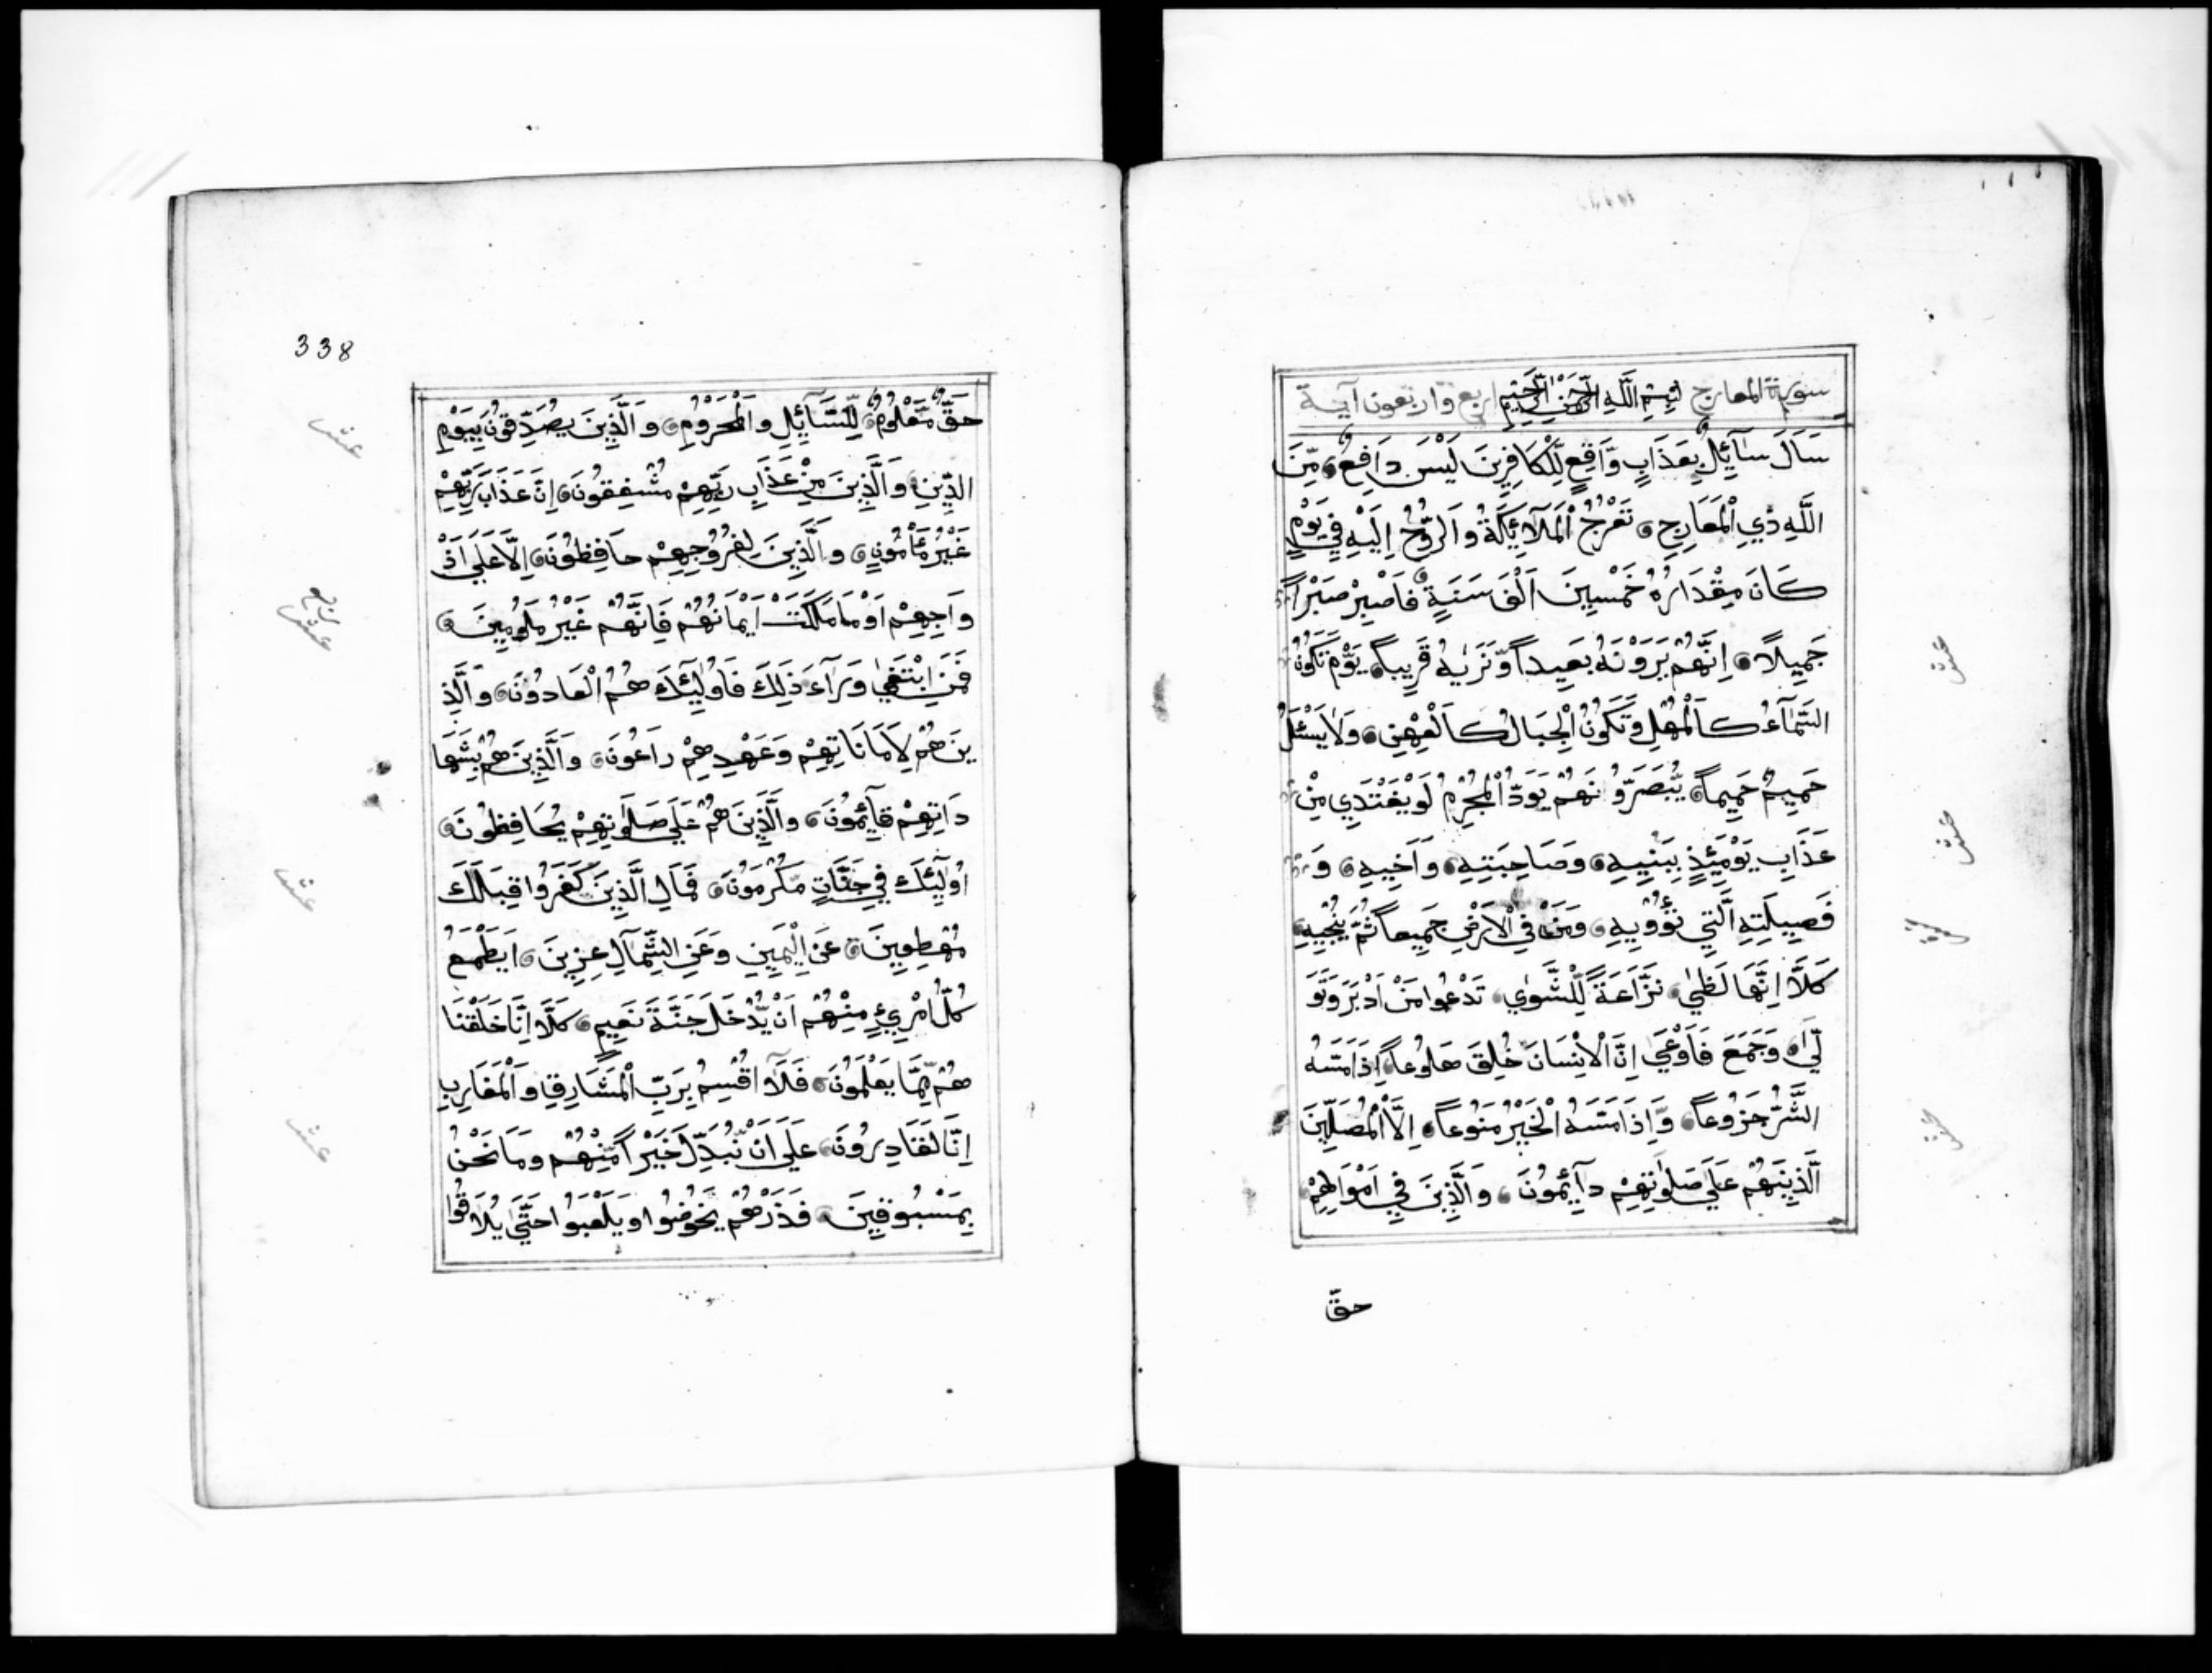 سورة المعارج بِسْمِ اللَّهِ الرَّحْمٰنِ الرَّحِيمِ اربع واربعون آية
سَأَلَ سَآئِلٌ بِعَذَابٍ وَّاقِعٍ لِّلْكَافِرِينَ لَيْسَ دَافِعٌ مِّنَ
اللَّهِ ذِي الْمَعَارِجِ تَعْرُجُ الْمَلَآئِكَةُ وَالرُّوحُ اِلَيْهِ فِي يَوْمٍ
كَانَ مِقْدَارُهُ خَمْسِينَ اَلْفَ سَنَةٍ فَاصْبِرْ صَبْراً
جَمِيلاً اِنَّهُمْ يَرَوْنَهُ بَعِيداً وَّنَرٰيهُ قَرِيباً يَوْمَ تَكُونُ
السَّمَآءُ كَالْمُهْلِ وَتَكُونُ الْجِبَالُ كَالْعِهْنِ وَلَا يَسْئَلُ
حَمِيمٌ حَمِيماً يُّبَصَّرُونَهُمْ يَوَدُّ الْمُجْرِمُ لَوْ يَفْتَدِي مِنْ
عَذَابِ يَوْمَئِذٍ بِبَنِيهِ وَصَاحِبَتِهِ وَاَخِيهِ وَ
فَصِيلَتِهِ الَّتِي تُؤْوِيهِ وَمَنْ فِي الْاَرْضِ جَمِيعاً ثُمَّ يُنْجِيهِ
كَلَّا اِنَّهَا لَظٰي نَزَّاعَةً لِّلشَّوٰي تَدْعُوا مَنْ اَدْبَرَ وَتَوَ
لّٰي وَجَمَعَ فَاَوْعٰي اِنَّ الْاِنْسَانَ خُلِقَ هَلُوعاً اِذَا مَسَّهُ
الشَّرُّ جَزُوعاً وَّاِذَا مَسَّهُ الْخَيْرُ مَنُوعاً اِلَّا الْمُصَلِّينَ
الَّذِينَهُمْ عَلَي صَلٰوتِهِمْ دَآئِمُونَ وَالَّذِينَ فِي اَمْوَالِهِمْ
حقّ
عشر
عشر
عشر
338
حَقٌّ مَّعْلُومٌ لِّلسَّآئِلِ وَالْمَحْرُومِ وَالَّذِينَ يُصَدِّقُونَ بِيَوْمِ
الدِّينِ وَالَّذِينَ مِنْ عَذَابِ رَبِّهِمْ مُشْفِقُونَ اِنَّ عَذَابَ رَبِّهِمْ
غَيْرُ مَأْمُونٍ وَالَّذِينَ لِفُرُوجِهِمْ حَافِظُونَ اِلَّا عَلَي اَزْ
وَاجِهِمْ اَوْ مَا مَلَكَتْ اَيْمَانُهُمْ فَاِنَّهُمْ غَيْرُ مَلُومِينَ
فَمَنِ ابْتَغٰي وَرَآءَ ذٰلِكَ فَاُولٰئِكَ هُمُ الْعَادُونَ وَالَّذِ
ينَ هُمْ لِاَمَانَاتِهِمْ وَعَهْدِهِمْ رَاعُونَ وَالَّذِينَ هُمْ بِشَهَا
دَاتِهِمْ قَآئِمُونَ وَالَّذِينَ هُمْ عَلَي صَلَوٰتِهِمْ يُحَافِظُونَ
اُولٰئِكَ فِي جَنَّاتٍ مُّكْرَمُونَ فَمَالِ الَّذِينَ كَفَرُوا قِبَلَكَ
مُهْطِعِينَ عَنِ الْيَمِينِ وَعَنِ الشِّمَالِ عِزِينَ اَيَطْمَعُ
كُلُّ امْرِئٍ مِنْهُمْ اَنْ يُّدْخَلَ جَنَّةَ نَعِيمٍ كَلَّا اِنَّا خَلَقْنَا
هُمْ مِّمَّا يَعْلَمُونَ فَلَآ اُقْسِمُ بِرَبِّ الْمَشَارِقِ وَالْمَغَارِبِ
اِنَّا لَقَادِرُونَ عَلَي اَنْ نُّبَدِّلَ خَيْراً مِّنْهُمْ وَمَا نَحْنُ
بِمَسْبُوقِينَ فَذَرْهُمْ يَخُوضُوا وَيَلْعَبُوا حَتّٰي يُلَاقُوا
عشر
ربع
عشر
عشر
عشر